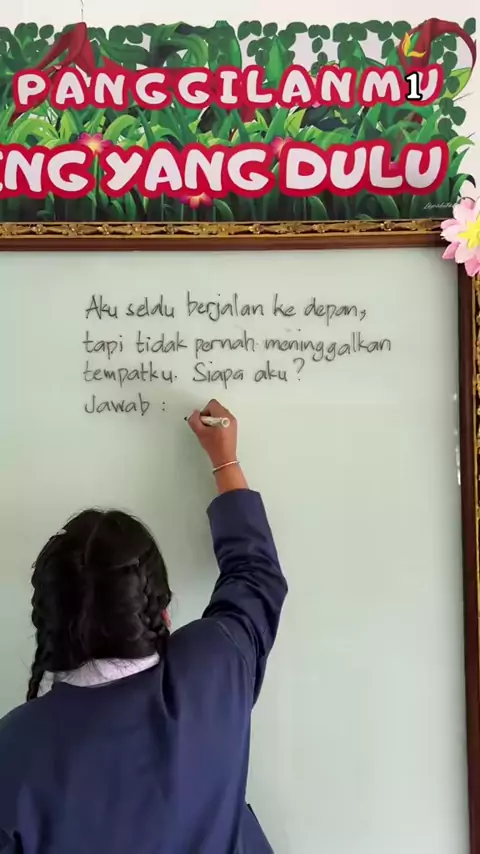 PANGGILANMU
1
NG YANG DULU
Aku selalu berjalan ke depan,
tapi tidak pernah meninggalkan
tempatku. Siapa aku?
Jawab :